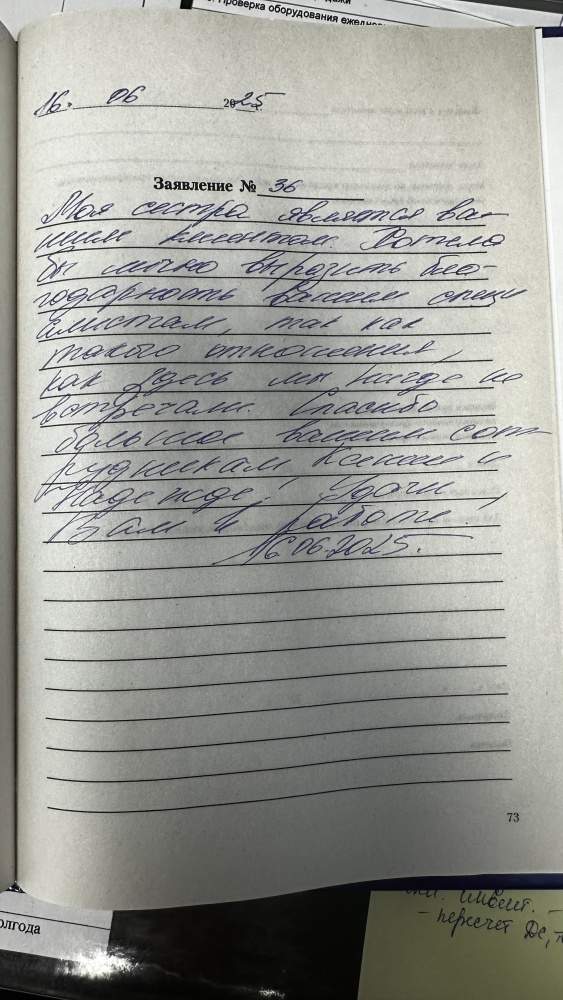 Проверка оборудования ежедне
16. 06 2025
Заявление № 36
Моя сестра является ва-
шим клиентом. Хотела
бы лично выразить бла-
годарность вашим специ
алистам, так как
такого отношения,
как здесь мы нигде не
встречали. Спасибо
большое вашим сот
рудникам Ксении и
Надежде! Удачи
Вам и работе!
16.06.2025.
73
олгода
- пересчет ДС,